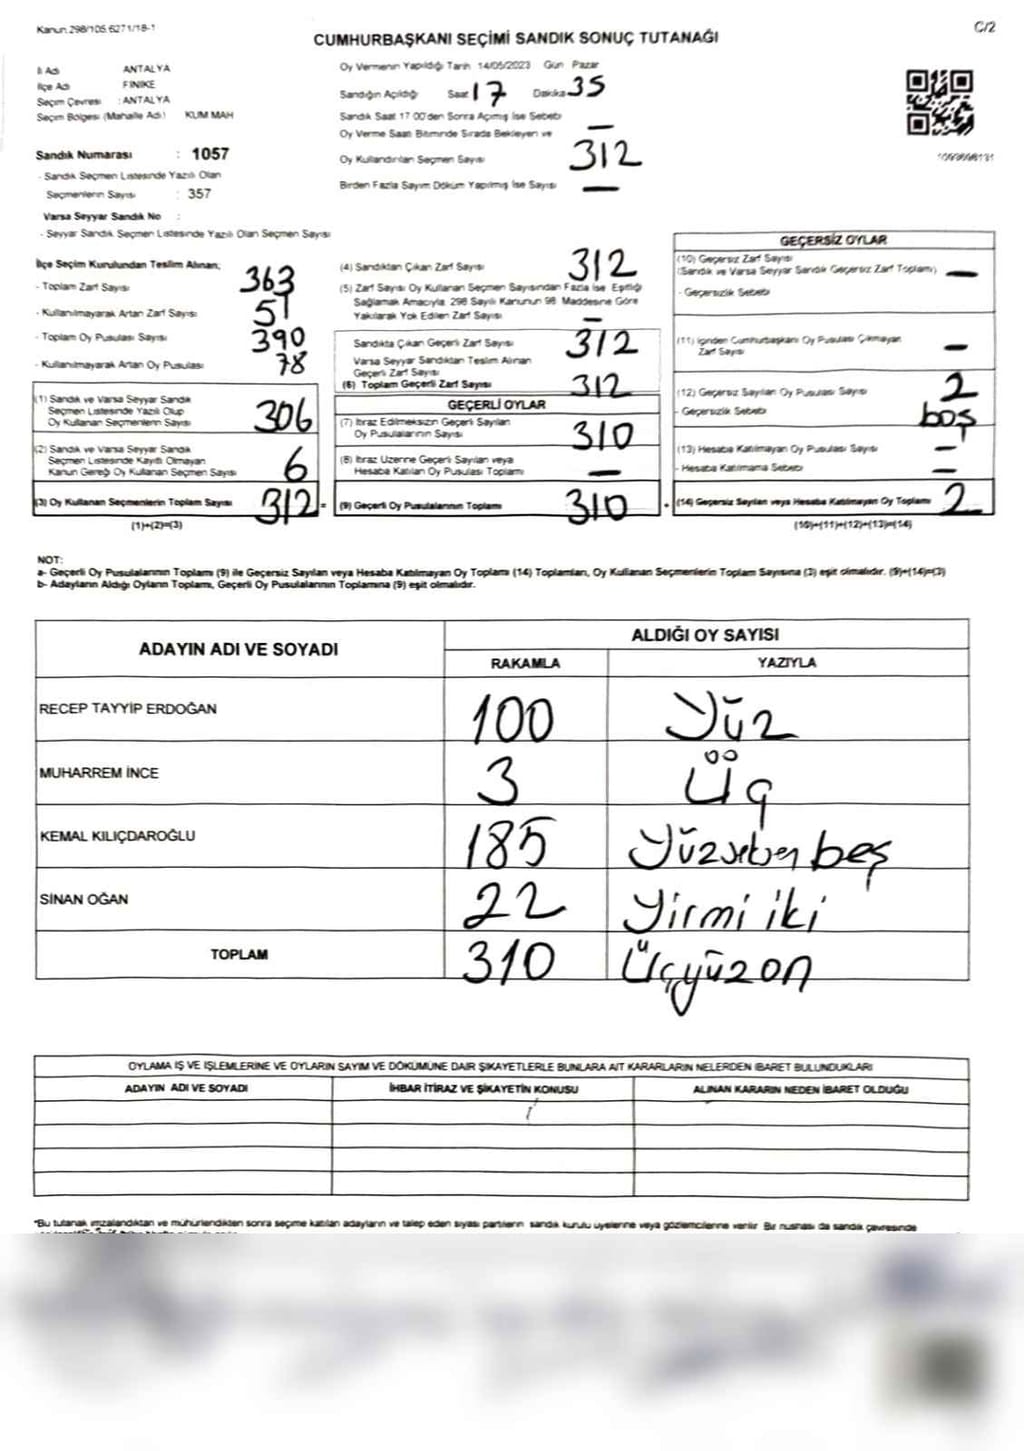 Kanun:298/105.6271/18-1
C/2
CUMHURBAŞKANI SEÇİMİ SANDIK SONUÇ TUTANAĞI
İl Adı ANTALYA
İlçe Adı FİNİKE
Seçim Çevresi : ANTALYA
Seçim Bölgesi (Mahalle Adı) KUM MAH
Sandık Numarası : 1057
- Sandık Seçmen Listesinde Yazılı Olan
Seçmenlerin Sayısı : 357
Varsa Seyyar Sandık No :
- Seyyar Sandık Seçmen Listesinde Yazılı Olan Seçmen Sayısı
Oy Vermenin Yapıldığı Tarih 14/05/2023 Gün Pazar
Sandığın Açıldığı Saat 17 Dakika 35
Sandık Saat 17 00'den Sonra Açımış İse Sebebi —
Oy Verme Saati Bitiminde Sırada Bekleyen ve
Oy Kullandırılan Seçmen Sayısı 312
Birden Fazla Sayım Döküm Yapılmış İse Sayısı —
İlçe Seçim Kurulundan Teslim Alınan;
- Toplam Zarf Sayısı 363
- Kullanılmayarak Artan Zarf Sayısı 51
- Toplam Oy Pusulası Sayısı 390
- Kullanılmayarak Artan Oy Pusulası 78
(1) Sandık ve Varsa Seyyar Sandık
Seçmen Listesinde Yazılı Olup
Oy Kullanan Seçmenlerin Sayısı 306
(2) Sandık ve Varsa Seyyar Sandık
Seçmen Listesinde Kayıtlı Olmayan
Kanun Gereği Oy Kullanan Seçmen Sayısı 6
(3) Oy Kullanan Seçmenlerin Toplam Sayısı 312 =
(1)+(2)=(3)
(4) Sandıktan Çıkan Zarf Sayısı 312
(5) Zarf Sayısı Oy Kullanan Seçmen Sayısından Fazla İse Eşitliği
Sağlamak Amacıyla 298 Sayılı Kanunun 98 Maddesine Göre
Yakılarak Yok Edilen Zarf Sayısı —
Sandıkta Çıkan Geçerli Zarf Sayısı 312
Varsa Seyyar Sandıktan Teslim Alınan
Geçerli Zarf Sayısı
(6) Toplam Geçerli Zarf Sayısı 312
GEÇERLİ OYLAR
(7) İtiraz Edilmeksizin Geçerli Sayılan
Oy Pusulalarının Sayısı 310
(8) İtiraz Üzerine Geçerli Sayılan veya
Hesaba Katılan Oy Pusulası Toplamı —
(9) Geçerli Oy Pusulalarının Toplamı 310 +
GEÇERSİZ OYLAR
(10) Geçersiz Zarf Sayısı
(Sandık ve Varsa Seyyar Sandık Geçersiz Zarf Toplamı) —
- Geçersizlik Sebebi
(11) İçinden Cumhurbaşkanı Oy Pusulası Çıkmayan
Zarf Sayısı —
(12) Geçersiz Sayılan Oy Pusulası Sayısı 2
- Geçersizlik Sebebi boş
(13) Hesaba Katılmayan Oy Pusulası Sayısı —
- Hesaba Katılmama Sebebi —
(14) Geçersiz Sayılan veya Hesaba Katılmayan Oy Toplamı 2
(10)+(11)+(12)+(13)=(14)
NOT:
a- Geçerli Oy Pusulalarının Toplamı (9) ile Geçersiz Sayılan veya Hesaba Katılmayan Oy Toplamı (14) Toplamları, Oy Kullanan Seçmenlerin Toplam Sayısına (3) eşit olmalıdır. (9)+(14)=(3)
b- Adayların Aldığı Oyların Toplamı, Geçerli Oy Pusulalarının Toplamına (9) eşit olmalıdır.
ADAYIN ADI VE SOYADI ALDIĞI OY SAYISI
RAKAMLA YAZIYLA
RECEP TAYYİP ERDOĞAN 100 Yüz
MUHARREM İNCE 3 Üç
KEMAL KILIÇDAROĞLU 185 Yüzseksen beş
SİNAN OĞAN 22 Yirmi iki
TOPLAM 310 Üçyüz on
OYLAMA İŞ VE İŞLEMLERİNE VE OYLARIN SAYIM VE DÖKÜMÜNE DAİR ŞİKAYETLERLE BUNLARA AİT KARARLARIN NELERDEN İBARET BULUNDUKLARI
ADAYIN ADI VE SOYADI İHBAR İTİRAZ VE ŞİKAYETİN KONUSU ALINAN KARARIN NEDEN İBARET OLDUĞU
*Bu tutanak imzalandıktan ve mühürlendikten sonra seçime katılan adayların ve talep eden siyasi partilerin sandık kurulu üyelerine veya gözlemcilerine verilir Bir nüshası da sandık çevresinde